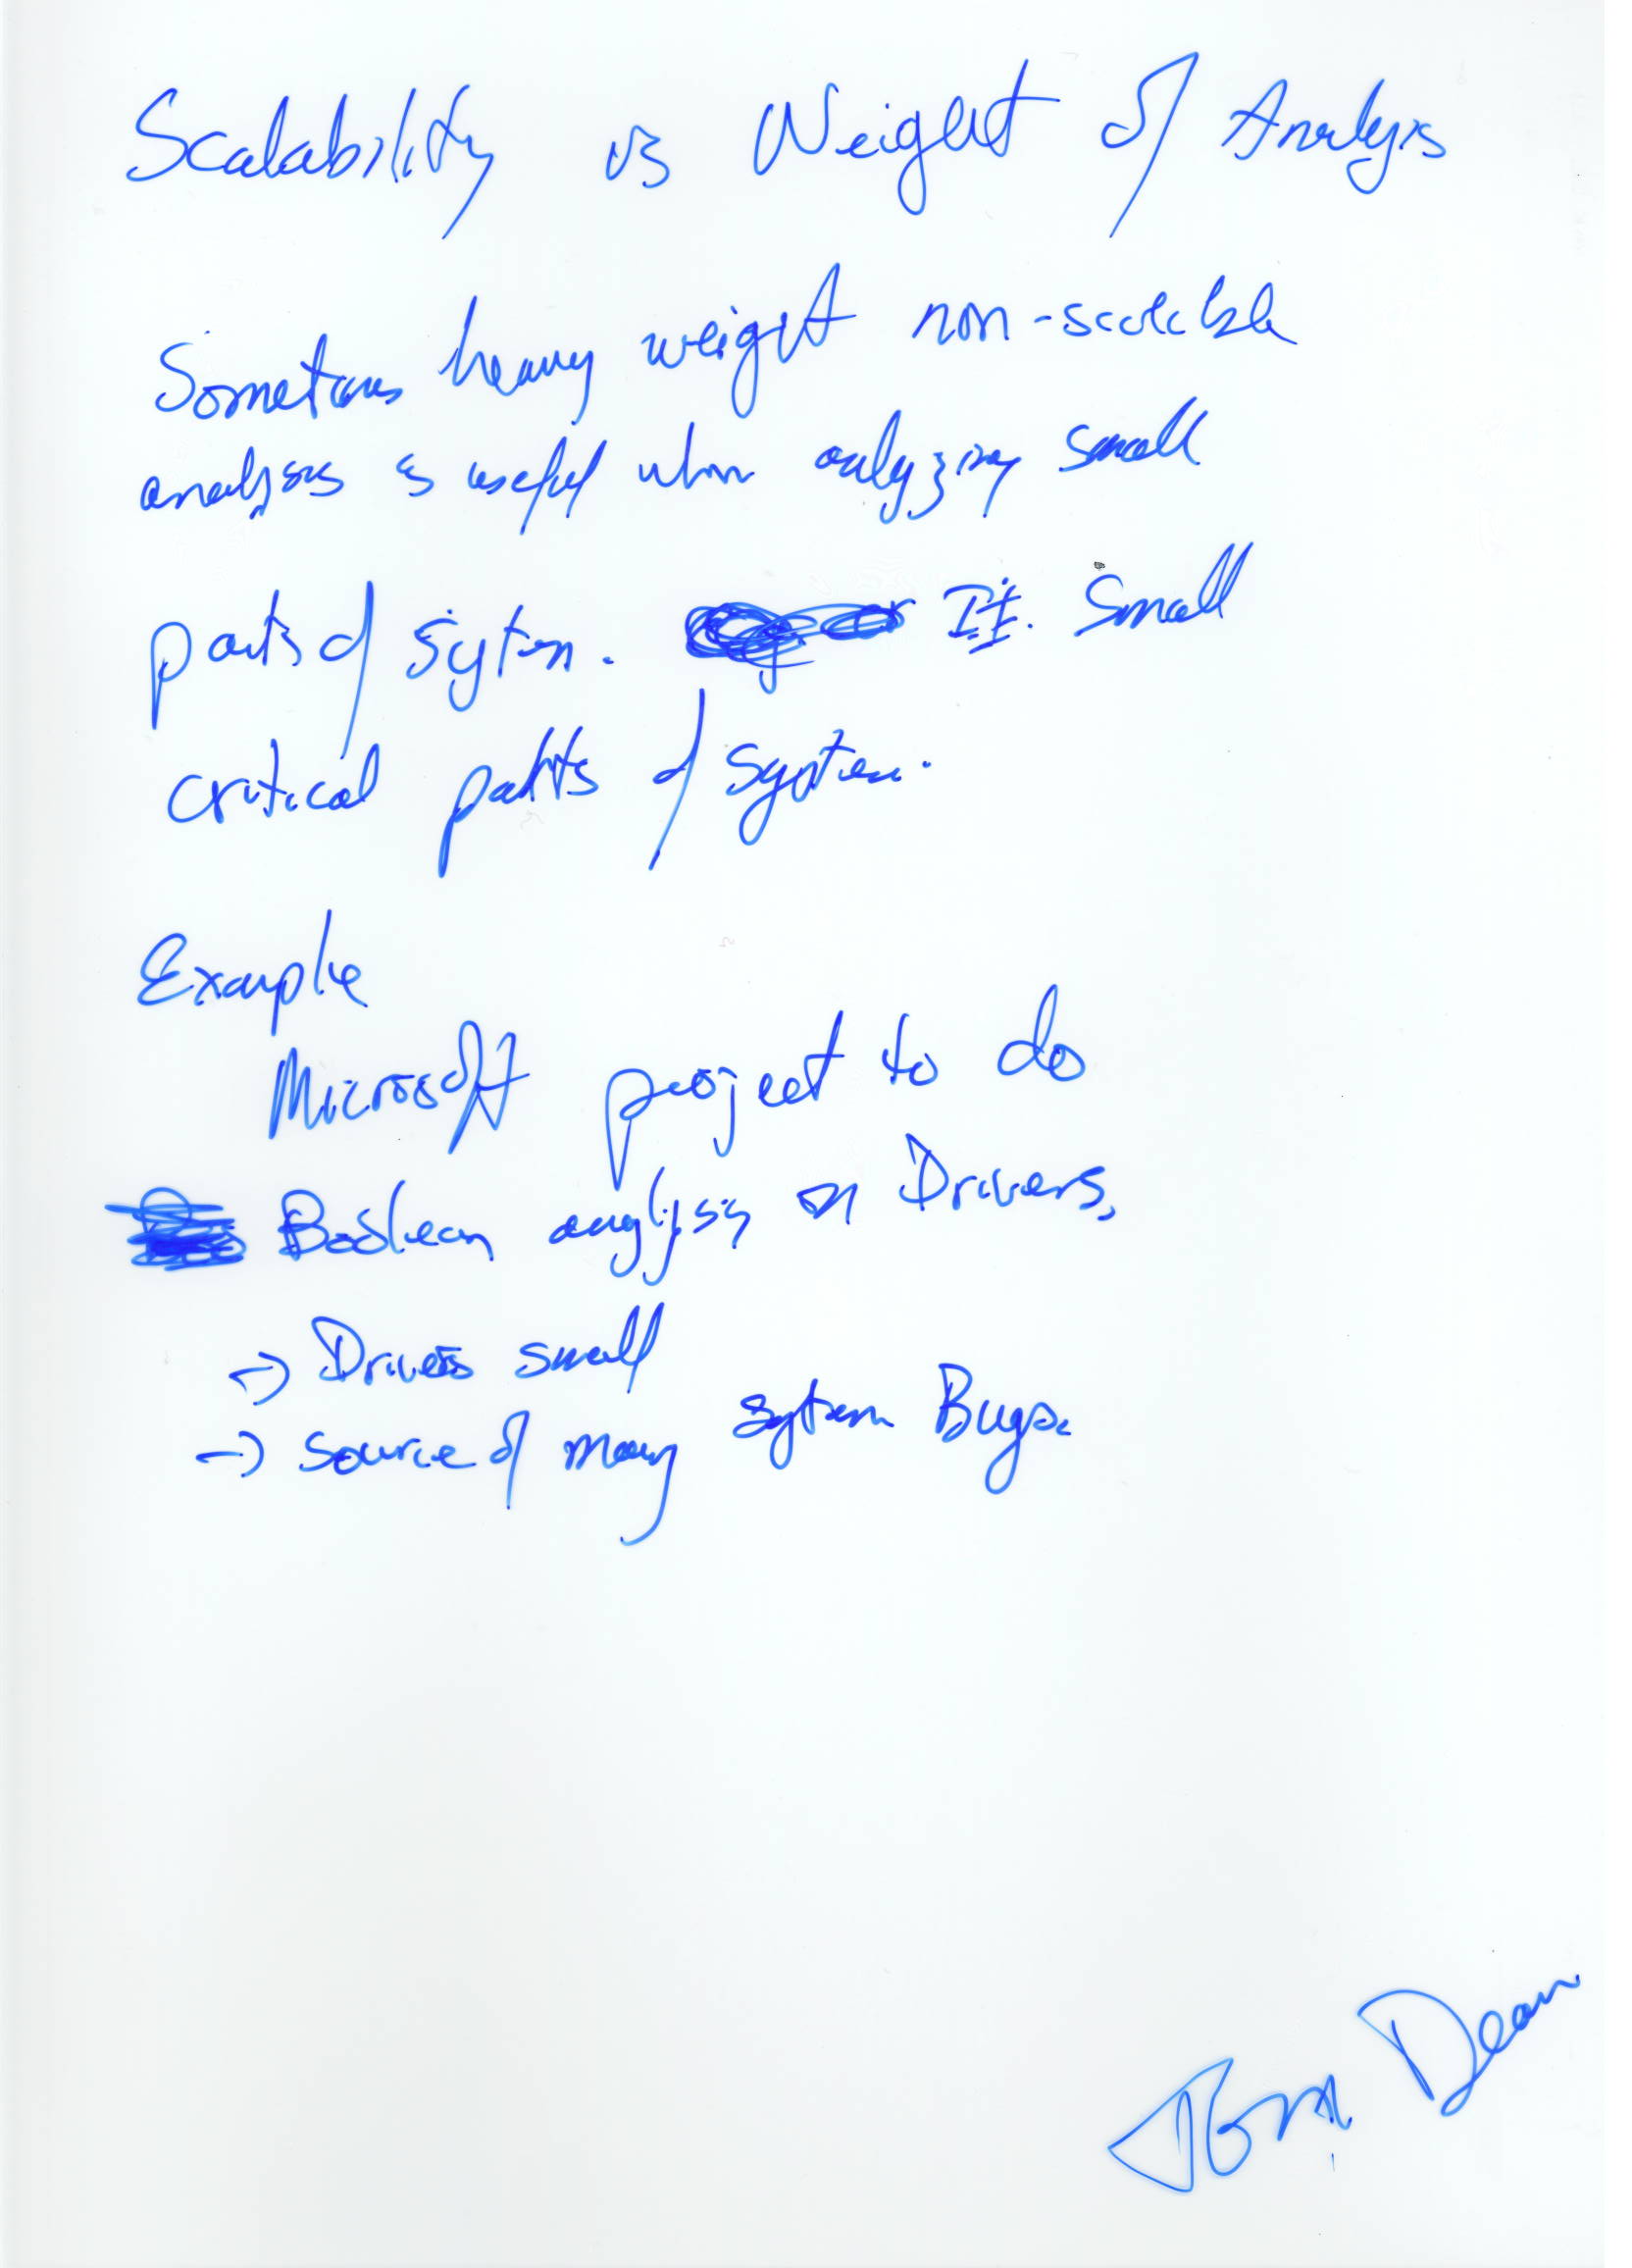 Scalability vs Weight of Analysis
Sometimes heavy weight non-scalable
analysis is useful when analyzing small
parts of system. I.E. Small
critical parts of system.
Example
Microsoft project to do
Boolean analysis on Drivers,
→ Drivers small
→ source of many system Bugs.
Tom Dean